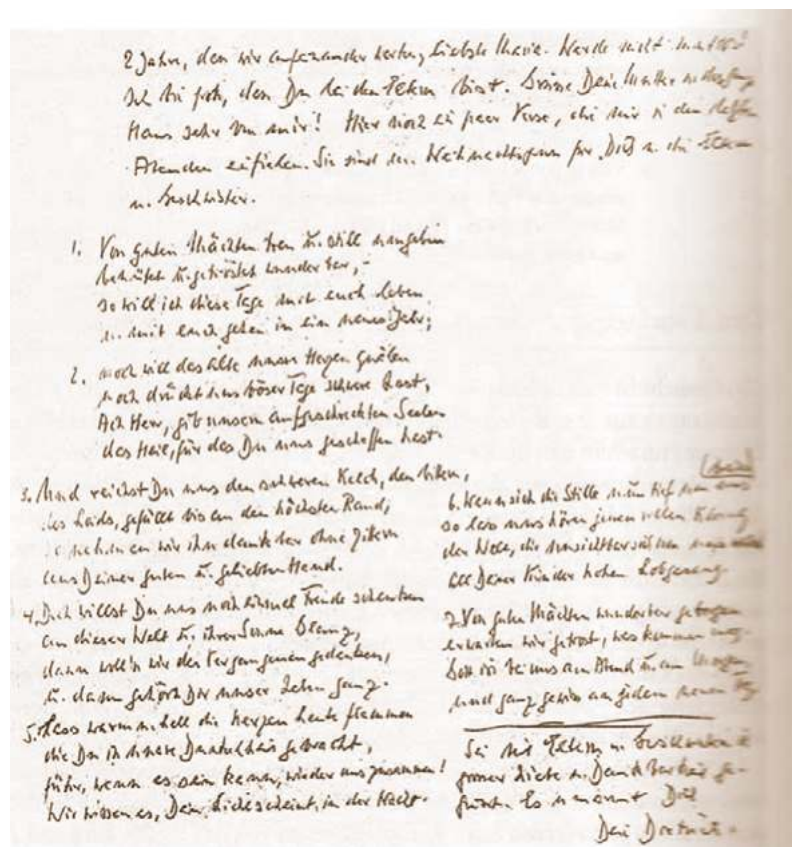 2 Jahre, dass wir aufeinander warten, liebste Maria. Werde nicht mutlos!
Ich bin froh, dass Du bei den Eltern bist. Grüsse Deine Mutter u. das ganze
Haus sehr von mir! Hier noch ein paar Verse, die mir in den letzten
Abenden einfielen. Sie sind der Weihnachtsgruss für Dich u. die Eltern
u. Geschwister.
1. Von guten Mächten treu u. still umgeben
behütet u. getröstet wunderbar, –
so will ich diese Tage mit euch leben
u. mit euch gehen in ein neues Jahr;
2. noch will das alte unsre Herzen quälen
noch drückt uns böser Tage schwere Last,
Ach Herr, gib unsern aufgescheuchten Seelen
das Heil, für das Du uns geschaffen hast.
3. Und reichst Du uns den schweren Kelch, den bittern,
des Leids, gefüllt bis an den höchsten Rand,
so nehmen wir ihn dankbar ohne Zittern
aus Deiner guten u. geliebten Hand.
4. Doch willst Du uns noch einmal Freude schenken
an dieser Welt u. ihrer Sonne Glanz,
dann woll'n wir des Vergangenen gedenken,
u. dann gehört Dir unser Leben ganz.
5. Lass warm u. hell die Kerzen heute flammen
die Du in unsre Dunkelheit gebracht,
führ, wenn es sein kann, wieder uns zusammen!
Wir wissen es, Dein Licht scheint in der Nacht.
6. Wenn sich die Stille nun tief um uns
so lass uns hören jenen vollen Klang
der Welt, die unsichtbar sich um uns
all Deiner Kinder hohen Lobgesang.
7. Von guten Mächten wunderbar geborgen
erwarten wir getrost, was kommen mag.
Gott ist bei uns am Abend u. am Morgen,
und ganz gewiss an jedem neuen Tag.
Sei mit Eltern u. Geschwistern in
grosser Liebe u. Dankbarkeit ge-
grüsst. Es umarmt Dich
Dein Dietrich